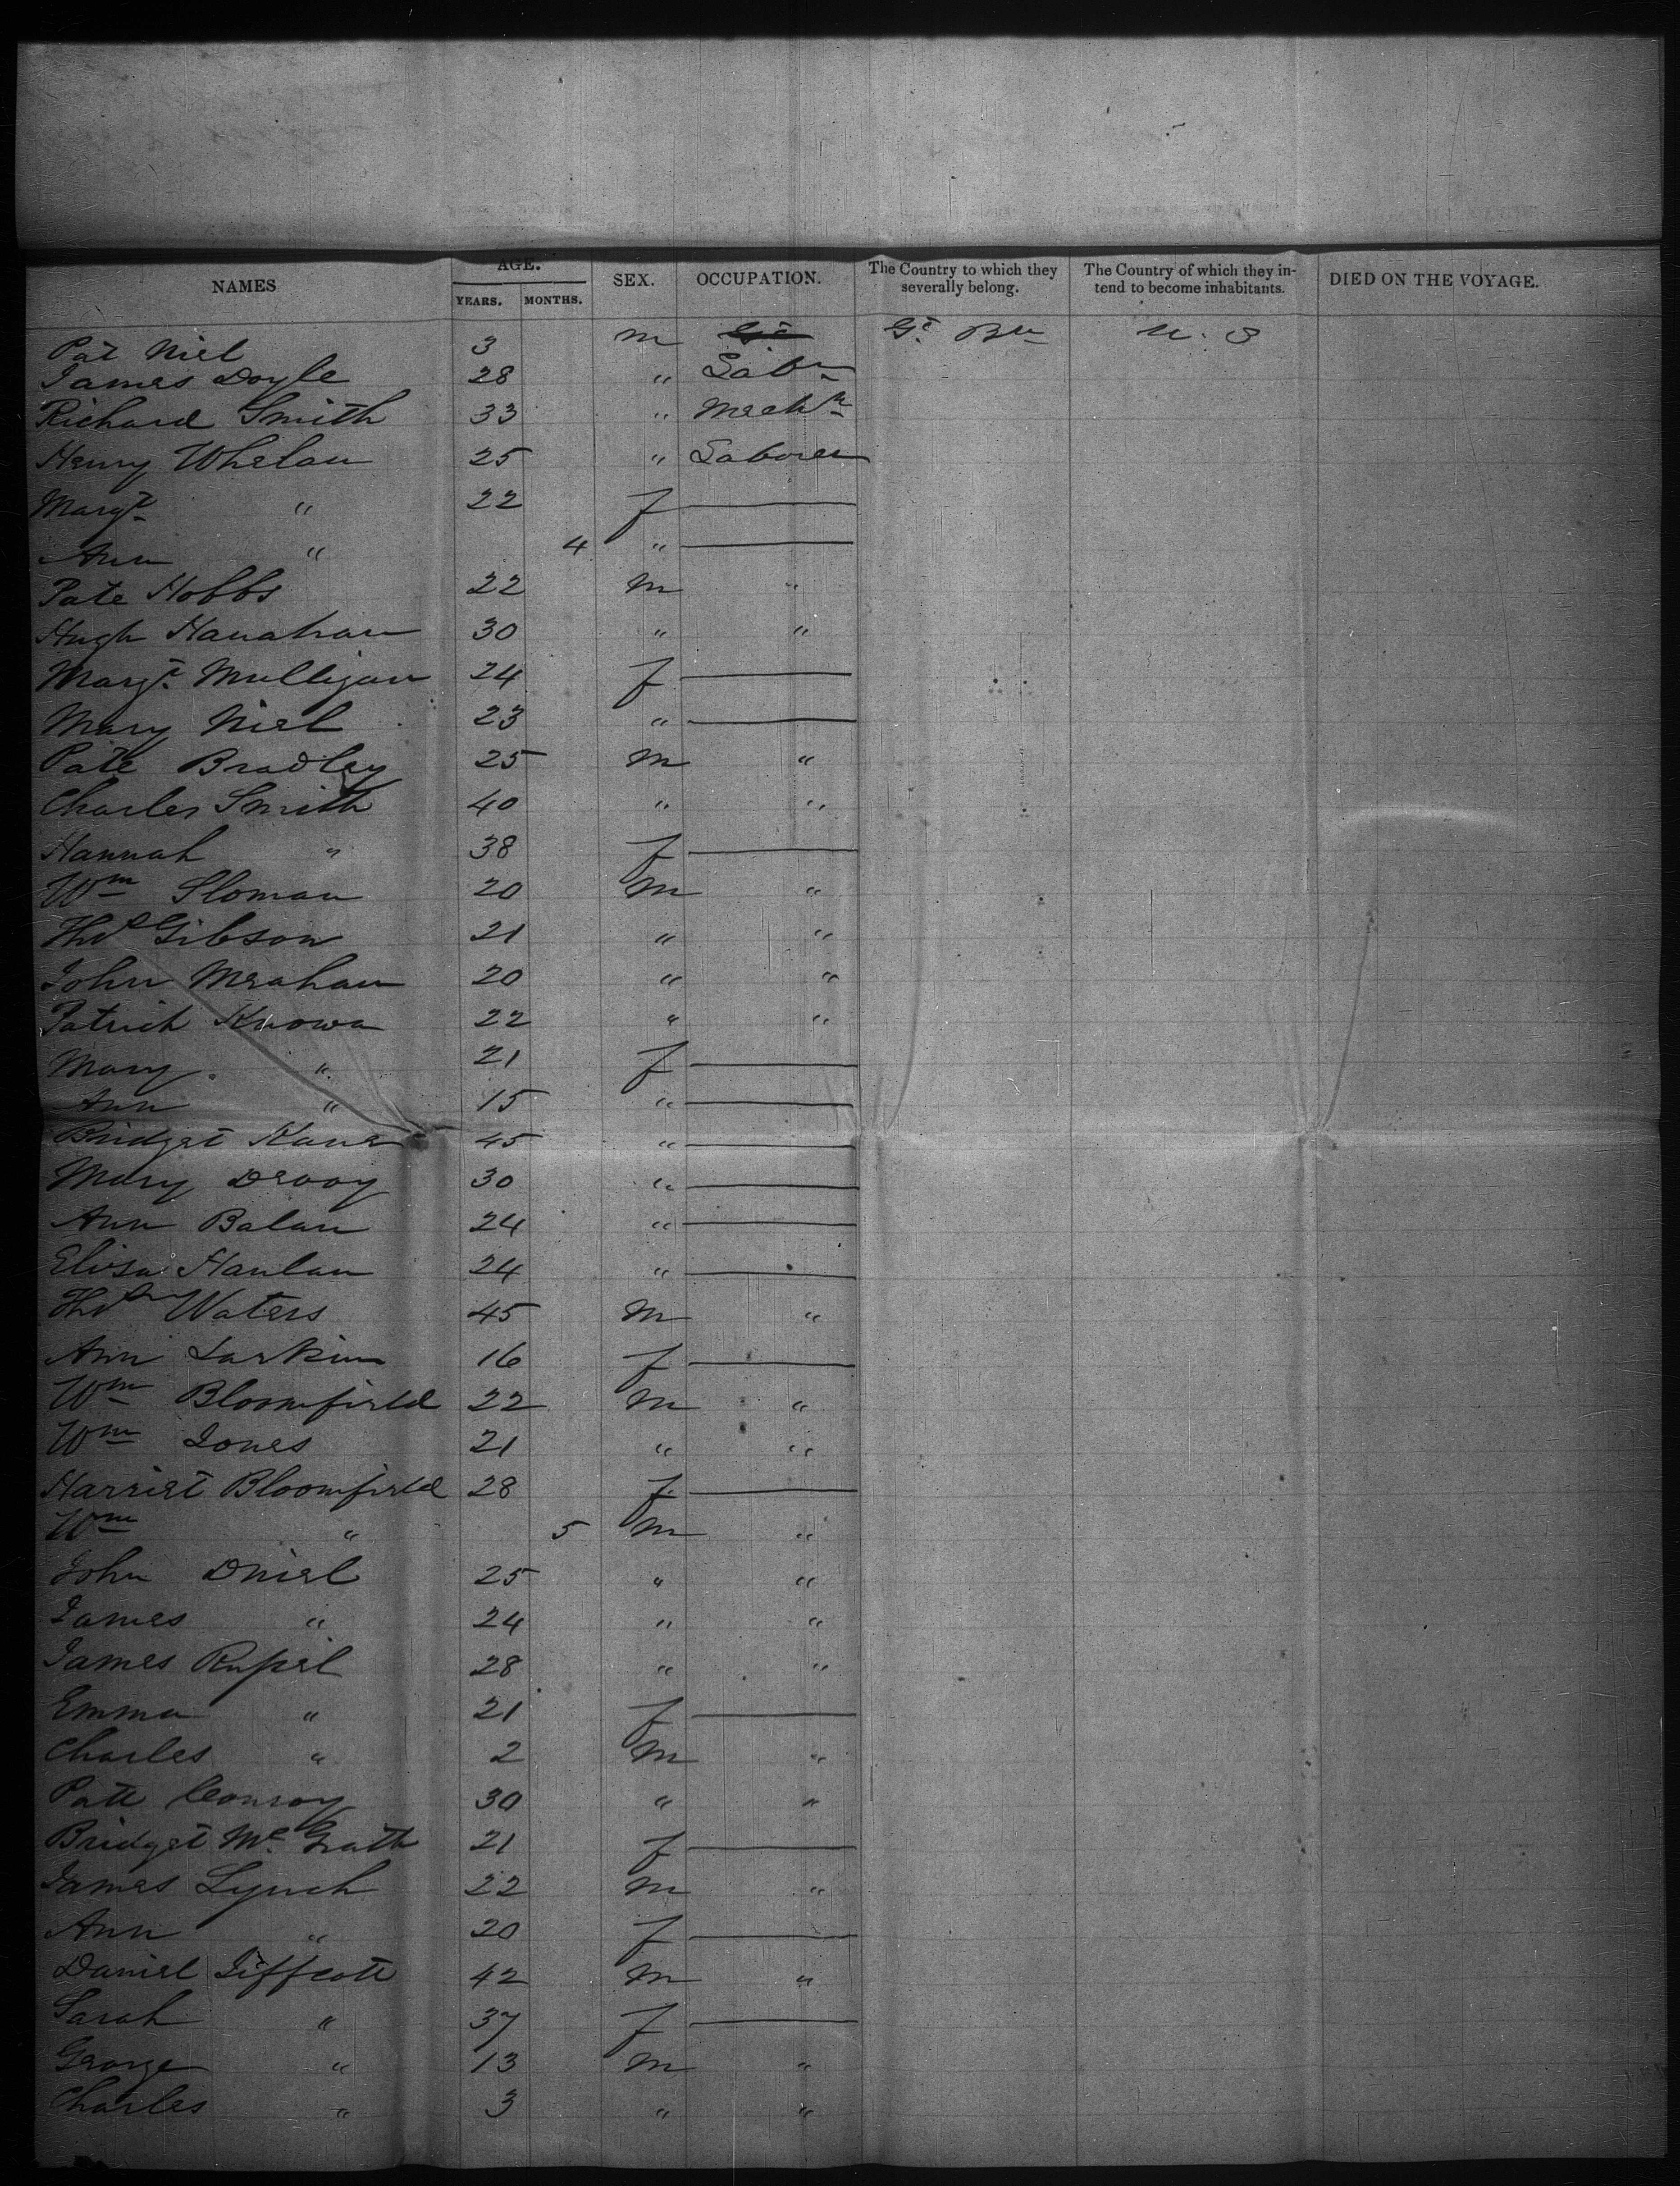 NAMES AGE. YEARS. MONTHS. SEX. OCCUPATION. The Country to which they severally belong. The Country of which they intend to become inhabitants. DIED ON THE VOYAGE.
Pat Niel 3 m Gt Bn U. S
James Doyle 28 " Labr
Richard Smith 33 " Mech
Henry Whelan 25 " Laborer
Margt " 22 f —
Ann " 4 " —
Pate Hobbs 22 m "
Hugh Hanahan 30 " "
Margt Mulligan 24 f —
Mary Niel 23 " —
Pate Bradley 25 m "
Charles Smith 40 " "
Hannah " 38 f —
Wm Sloman 20 m "
Thos Gibson 21 " "
John Meahan 20 " "
Patrick Knowa 22 " "
Mary " 21 f —
Ann " 15 " —
Bridget Kane 45 " —
Mary Devoy 30 " —
Ann Balan 24 " —
Elisa Hanlan 24 " —
Thos Waters 45 m "
Ann Larkin 16 f —
Wm Bloomfield 22 m "
Wm Jones 21 " "
Harriet Bloomfield 28 f —
Wm " 5 m "
John Oniel 25 " "
James " 24 " "
James Russel 28 " "
Emma " 21 f —
Charles " 2 m "
Patt Conroy 30 " "
Bridget McGrath 21 f —
James Lynch 22 m "
Ann " 20 f —
Daniel Jiffcott 42 m "
Sarah " 37 f —
George " 13 m "
Charles " 3 " "